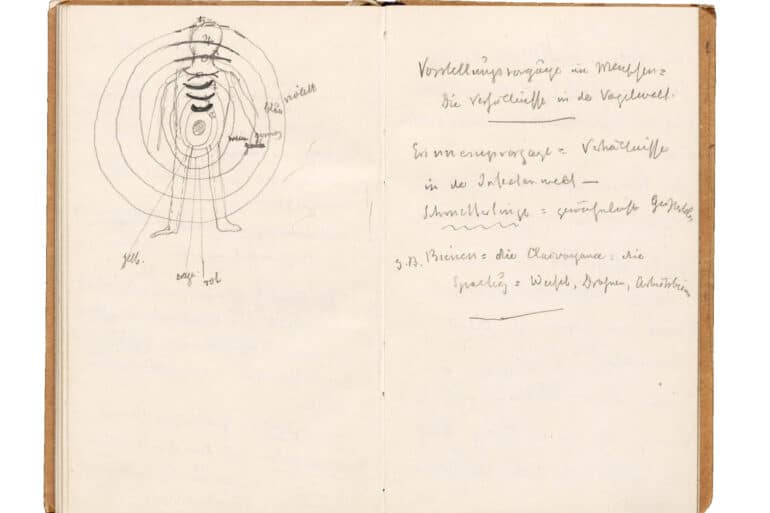 blau violett
grün
gelb.
orange
rot
Vorstellungsvorgänge im Menschen =
Die Verhältnisse in der Vogelwelt.
Erinnerungsvorgänge = Verhältnisse
in der Insectenwelt —
Schmetterlinge =
z.B. Bienen = die Clairvoyance = die
= Weisel, Drohnen, Arbeitsbienen